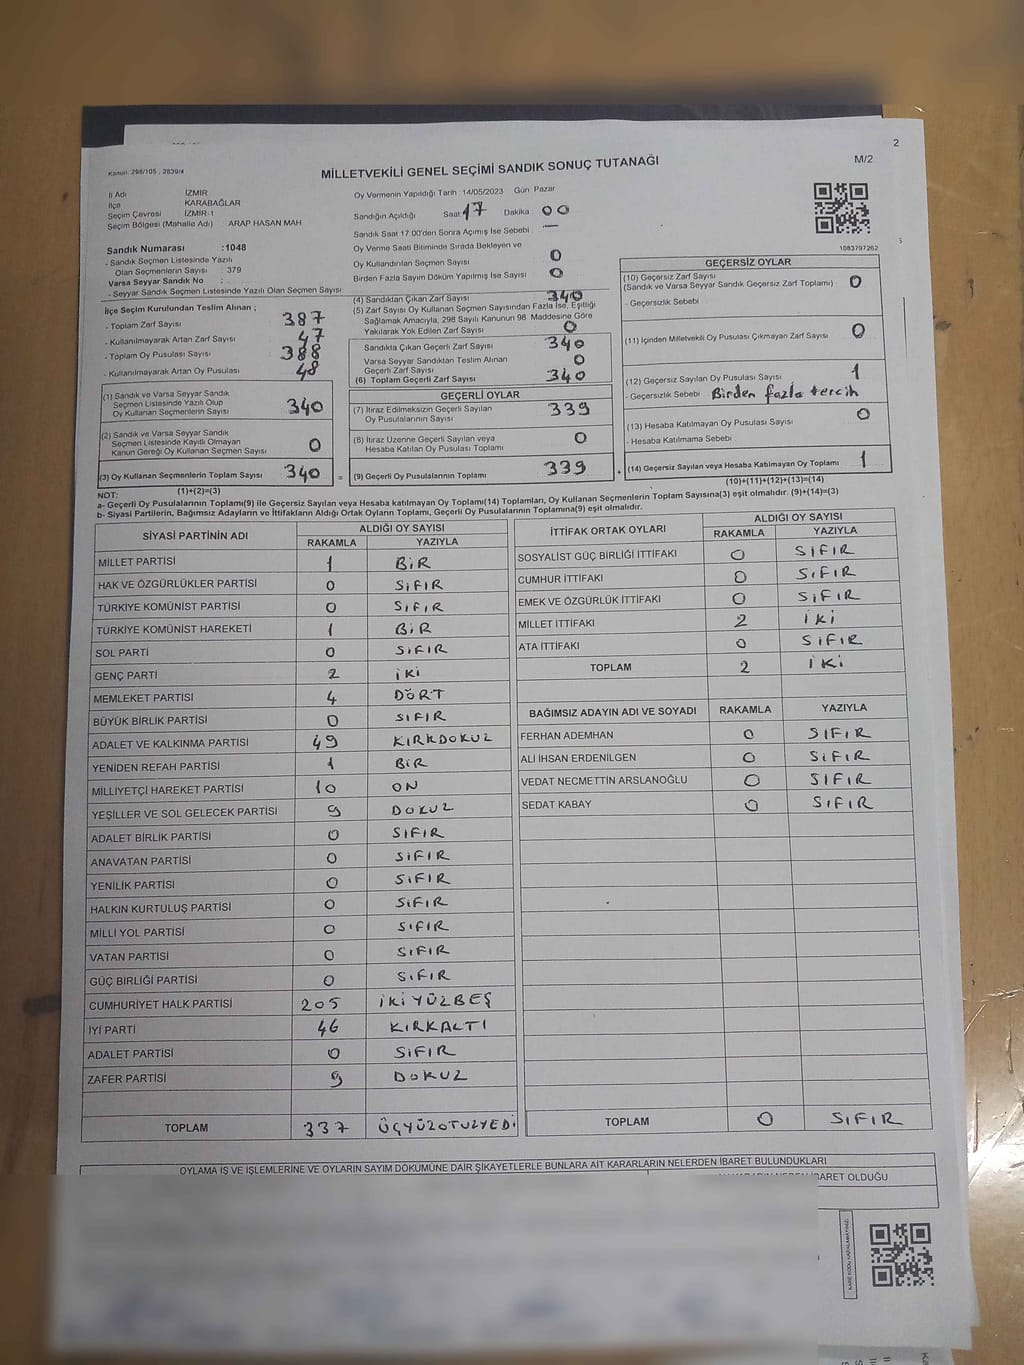 2
Kanun: 298/105 , 2839/4
MİLLETVEKİLİ GENEL SEÇİMİ SANDIK SONUÇ TUTANAĞI
M/2
İl Adı İZMİR
İlçe KARABAĞLAR
Seçim Çevresi İZMİR-1
Seçim Bölgesi (Mahalle Adı) ARAP HASAN MAH
Oy Vermenin Yapıldığı Tarih :14/05/2023 Gün Pazar
Sandığın Açıldığı Saat 17 Dakika 00
Sandık Saat 17:00'den Sonra Açımış İse Sebebi —
Oy Verme Saati Bitiminde Sırada Bekleyen ve
Oy Kullandırılan Seçmen Sayısı 0
Birden Fazla Sayım Döküm Yapılmış İse Sayısı 0
1083797262
Sandık Numarası :1048
- Sandık Seçmen Listesinde Yazılı
Olan Seçmenlerin Sayısı : 379
Varsa Seyyar Sandık No : -
- Seyyar Sandık Seçmen Listesinde Yazılı Olan Seçmen Sayısı
İlçe Seçim Kurulundan Teslim Alınan ;
- Toplam Zarf Sayısı 387
- Kullanılmayarak Artan Zarf Sayısı 47
- Toplam Oy Pusulası Sayısı 388
- Kullanılmayarak Artan Oy Pusulası 48
(1) Sandık ve Varsa Seyyar Sandık
Seçmen Listesinde Yazılı Olup
Oy Kullanan Seçmenlerin Sayısı 340
(2) Sandık ve Varsa Seyyar Sandık
Seçmen Listesinde Kayıtlı Olmayan
Kanun Gereği Oy Kullanan Seçmen Sayısı 0
(3) Oy Kullanan Seçmenlerin Toplam Sayısı 340
(1)+(2)=(3)
(4) Sandıktan Çıkan Zarf Sayısı 340
(5) Zarf Sayısı Oy Kullanan Seçmen Sayısından Fazla İse, Eşitliği
Sağlamak Amacıyla, 298 Sayılı Kanunun 98. Maddesine Göre
Yakılarak Yok Edilen Zarf Sayısı 0
Sandıkta Çıkan Geçerli Zarf Sayısı 340
Varsa Seyyar Sandıktan Teslim Alınan
Geçerli Zarf Sayısı 0
(6) Toplam Geçerli Zarf Sayısı 340
GEÇERLİ OYLAR
(7) İtiraz Edilmeksizin Geçerli Sayılan
Oy Pusulalarının Sayısı 339
(8) İtiraz Üzerine Geçerli Sayılan veya
Hesaba Katılan Oy Pusulası Toplamı 0
= (9) Geçerli Oy Pusulalarının Toplamı 339
GEÇERSİZ OYLAR
(10) Geçersiz Zarf Sayısı
(Sandık ve Varsa Seyyar Sandık Geçersiz Zarf Toplamı) 0
- Geçersizlik Sebebi
(11) İçinden Milletvekili Oy Pusulası Çıkmayan Zarf Sayısı 0
(12) Geçersiz Sayılan Oy Pusulası Sayısı 1
- Geçersizlik Sebebi Birden fazla tercih
(13) Hesaba Katılmayan Oy Pusulası Sayısı 0
- Hesaba Katılmama Sebebi
+ (14) Geçersiz Sayılan veya Hesaba Katılmayan Oy Toplamı 1
(10)+(11)+(12)+(13)=(14)
NOT:
a- Geçerli Oy Pusulalarının Toplamı(9) ile Geçersiz Sayılan veya Hesaba katılmayan Oy Toplamı(14) Toplamları, Oy Kullanan Seçmenlerin Toplam Sayısına(3) eşit olmalıdır. (9)+(14)=(3)
b- Siyasi Partilerin, Bağımsız Adayların ve İttifakların Aldığı Ortak Oyların Toplamı, Geçerli Oy Pusulalarının Toplamına(9) eşit olmalıdır.
SİYASİ PARTİNİN ADI ALDIĞI OY SAYISI
RAKAMLA YAZIYLA
MİLLET PARTİSİ 1 BİR
HAK VE ÖZGÜRLÜKLER PARTİSİ 0 SIFIR
TÜRKİYE KOMÜNİST PARTİSİ 0 SIFIR
TÜRKİYE KOMÜNİST HAREKETİ 1 BİR
SOL PARTİ 0 SIFIR
GENÇ PARTİ 2 İKİ
MEMLEKET PARTİSİ 4 DÖRT
BÜYÜK BİRLİK PARTİSİ 0 SIFIR
ADALET VE KALKINMA PARTİSİ 49 KIRKDOKUZ
YENİDEN REFAH PARTİSİ 1 BİR
MİLLİYETÇİ HAREKET PARTİSİ 10 ON
YEŞİLLER VE SOL GELECEK PARTİSİ 9 DOKUZ
ADALET BİRLİK PARTİSİ 0 SIFIR
ANAVATAN PARTİSİ 0 SIFIR
YENİLİK PARTİSİ 0 SIFIR
HALKIN KURTULUŞ PARTİSİ 0 SIFIR
MİLLİ YOL PARTİSİ 0 SIFIR
VATAN PARTİSİ 0 SIFIR
GÜÇ BİRLİĞİ PARTİSİ 0 SIFIR
CUMHURİYET HALK PARTİSİ 205 İKİYÜZBEŞ
İYİ PARTİ 46 KIRKALTI
ADALET PARTİSİ 0 SIFIR
ZAFER PARTİSİ 9 DOKUZ
TOPLAM 337 ÜÇYÜZOTUZYEDİ
İTTİFAK ORTAK OYLARI ALDIĞI OY SAYISI
RAKAMLA YAZIYLA
SOSYALİST GÜÇ BİRLİĞİ İTTİFAKI 0 SIFIR
CUMHUR İTTİFAKI 0 SIFIR
EMEK VE ÖZGÜRLÜK İTTİFAKI 0 SIFIR
MİLLET İTTİFAKI 2 İKİ
ATA İTTİFAKI 0 SIFIR
TOPLAM 2 İKİ
BAĞIMSIZ ADAYIN ADI VE SOYADI RAKAMLA YAZIYLA
FERHAN ADEMHAN 0 SIFIR
ALİ İHSAN ERDENİLGEN 0 SIFIR
VEDAT NECMETTİN ARSLANOĞLU 0 SIFIR
SEDAT KABAY 0 SIFIR
TOPLAM 0 SIFIR
OYLAMA İŞ VE İŞLEMLERİNE VE OYLARIN SAYIM DÖKÜMÜNE DAİR ŞİKAYETLERLE BUNLARA AİT KARARLARIN NELERDEN İBARET BULUNDUKLARI
BARET OLDUĞU